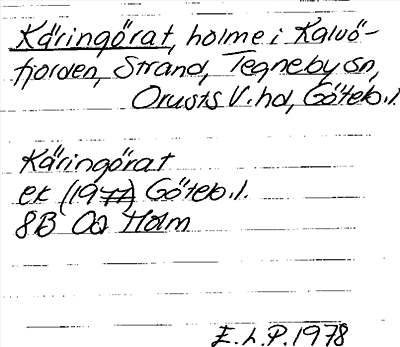 Käringörat, holme i Kalvö-
fjorden, Strand, Tegneby sn,
Orusts V. hd, Göteb. l.
Käringörat
ek (1977) Göteb. l.
8B 0a Holm
E. L. P. 1978